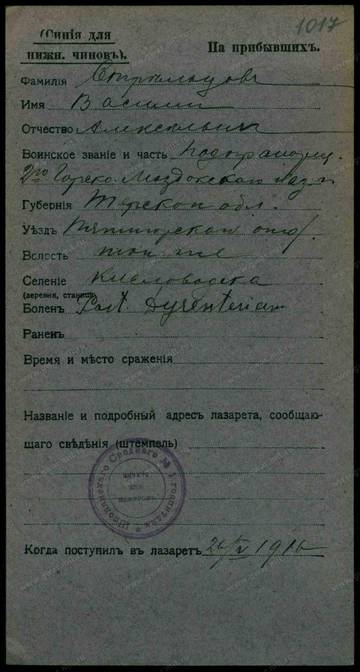 1017
(Синія для
нижн. чиновъ).
На прибывшихъ.
Фамилія
Имя Василий
Отчество Алексѣевич
Воинское званіе и часть подпрапорщ.
2го Горско Моздокскаго каз. п
Губернія Терской обл.
Уѣздъ Пятигорскаго отд.
Волость той же
Селеніе Кисловодска
(деревня, станица)
Боленъ Post Dysenteriam
Раненъ
Время и мѣсто сраженія
Названіе и подробный адресъ лазарета, сообщаю-
щаго свѣдѣнія (штемпель)
Когда поступилъ въ лазаретъ 1916